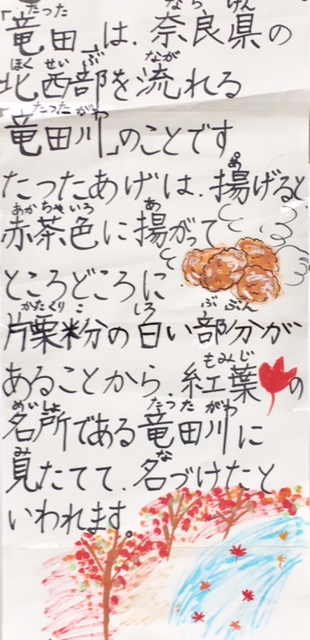 「竜田」は、奈良県の
北西部を流れる
「竜田川」のことです
たったあげは、揚げると
赤茶色に揚がって
ところどころに
片栗粉の白い部分が
あることから、紅葉の
名所である竜田川に
見たてて、名づけたと
いわれます。